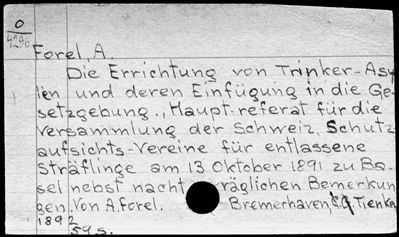 O
4296
Forel, A.
Die Errichtung von Trinker-Asy
len und deren Einfügung in die Ge-
setzgebung., Haupt-referat für die
Versammlung der Schweiz. Schutz
aufsichts-Vereine für entlassene
Sträflinge am 13. Oktober 1891 zu Ba-
sel nebst nacht räglichen Bemerkun
gen. Von A. Forel. Bremerhaven, C.G. Tienken
1892
59 s.